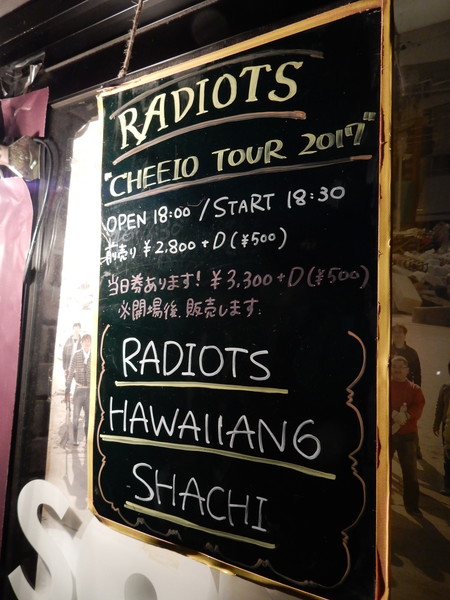 RADIOTS
"CHEEIO TOUR 2017"
OPEN 18:00 / START 18:30
前売り ¥2,800+D(¥500)
当日券あります! ¥3,300+D(¥500)
※開場後、販売します。
RADIOTS
HAWAIIAN6
SHACHI